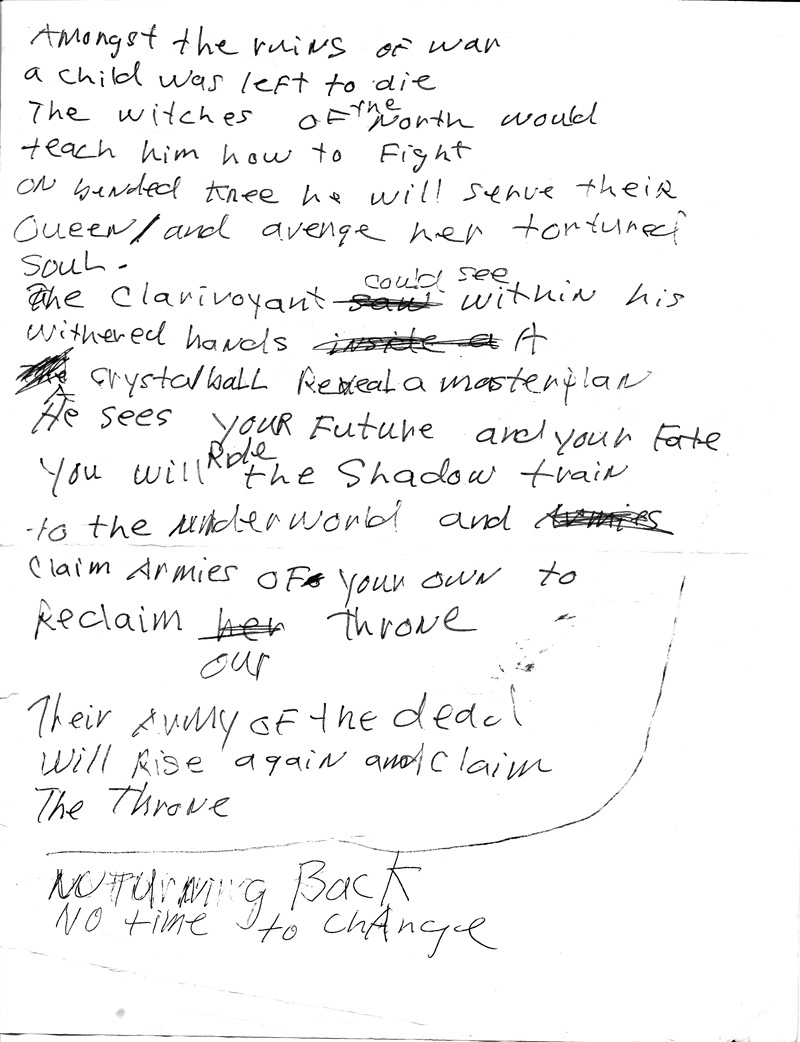 Amongst the ruins of war
a child was left to die
The witches of the North would
teach him how to Fight
on bended knee he will serve their
Queen/and avenge her tortured
soul.
The Clarivoyant saw could see within his
withered hands inside a A
crystal ball Reveal a masterplan
He sees your Future and your Fate
You will Ride the Shadow train
to the underworld and Armies
Claim Armies of your own to
Reclaim her throne
our
Their Army of the dead
will Rise again and Claim
The Throne
NO Turning Back
NO time to change